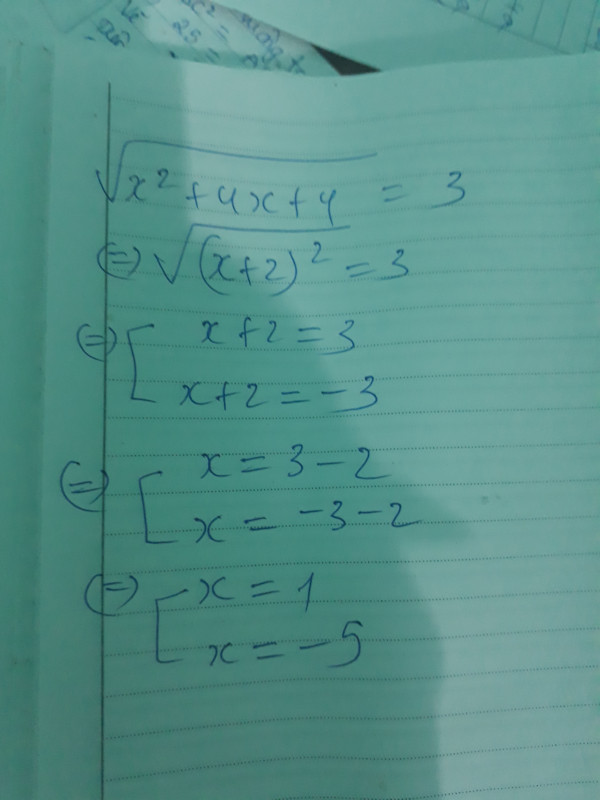 √(x² + 4x + 4) = 3
⇔ √((x+2)²) = 3
⇔ [ x + 2 = 3
x + 2 = -3
⇔ [ x = 3 - 2
x = -3 - 2
⇔ [ x = 1
x = -5